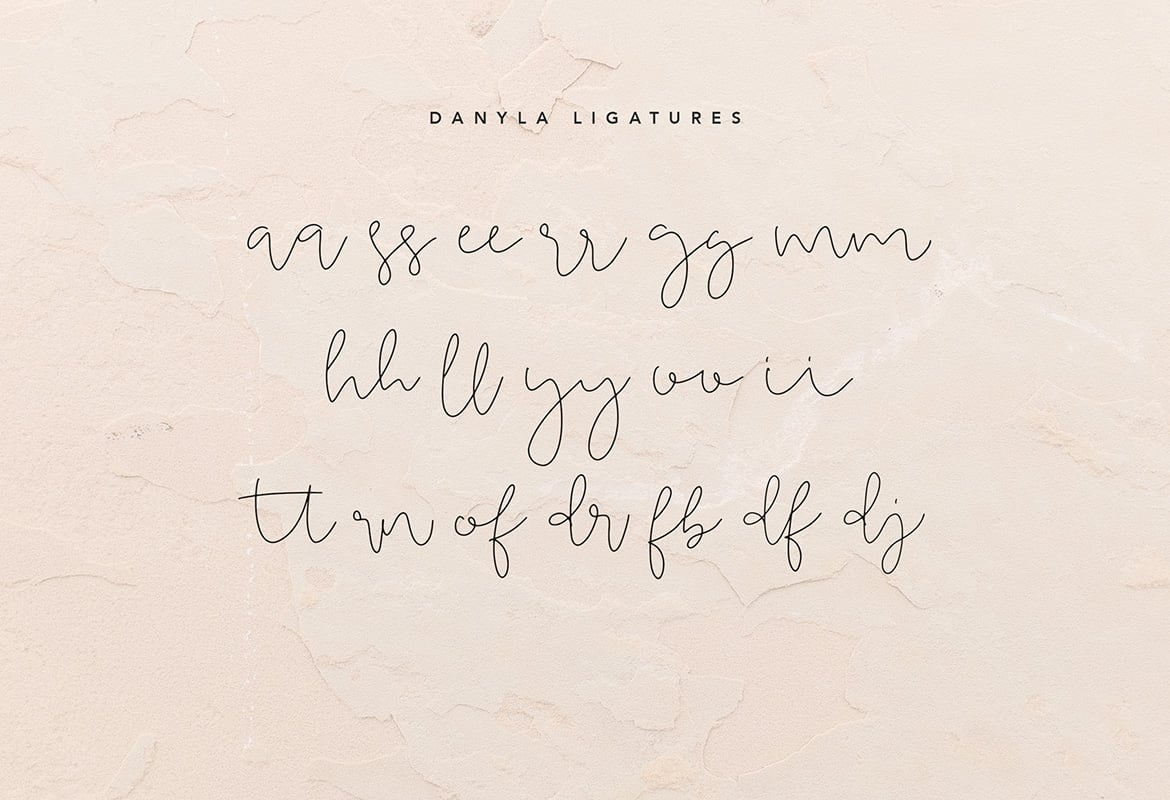 DANYLA LIGATURES
aa ss ee rr gg mm
hh ll yy oo ii
tt rn of dr fb df dj